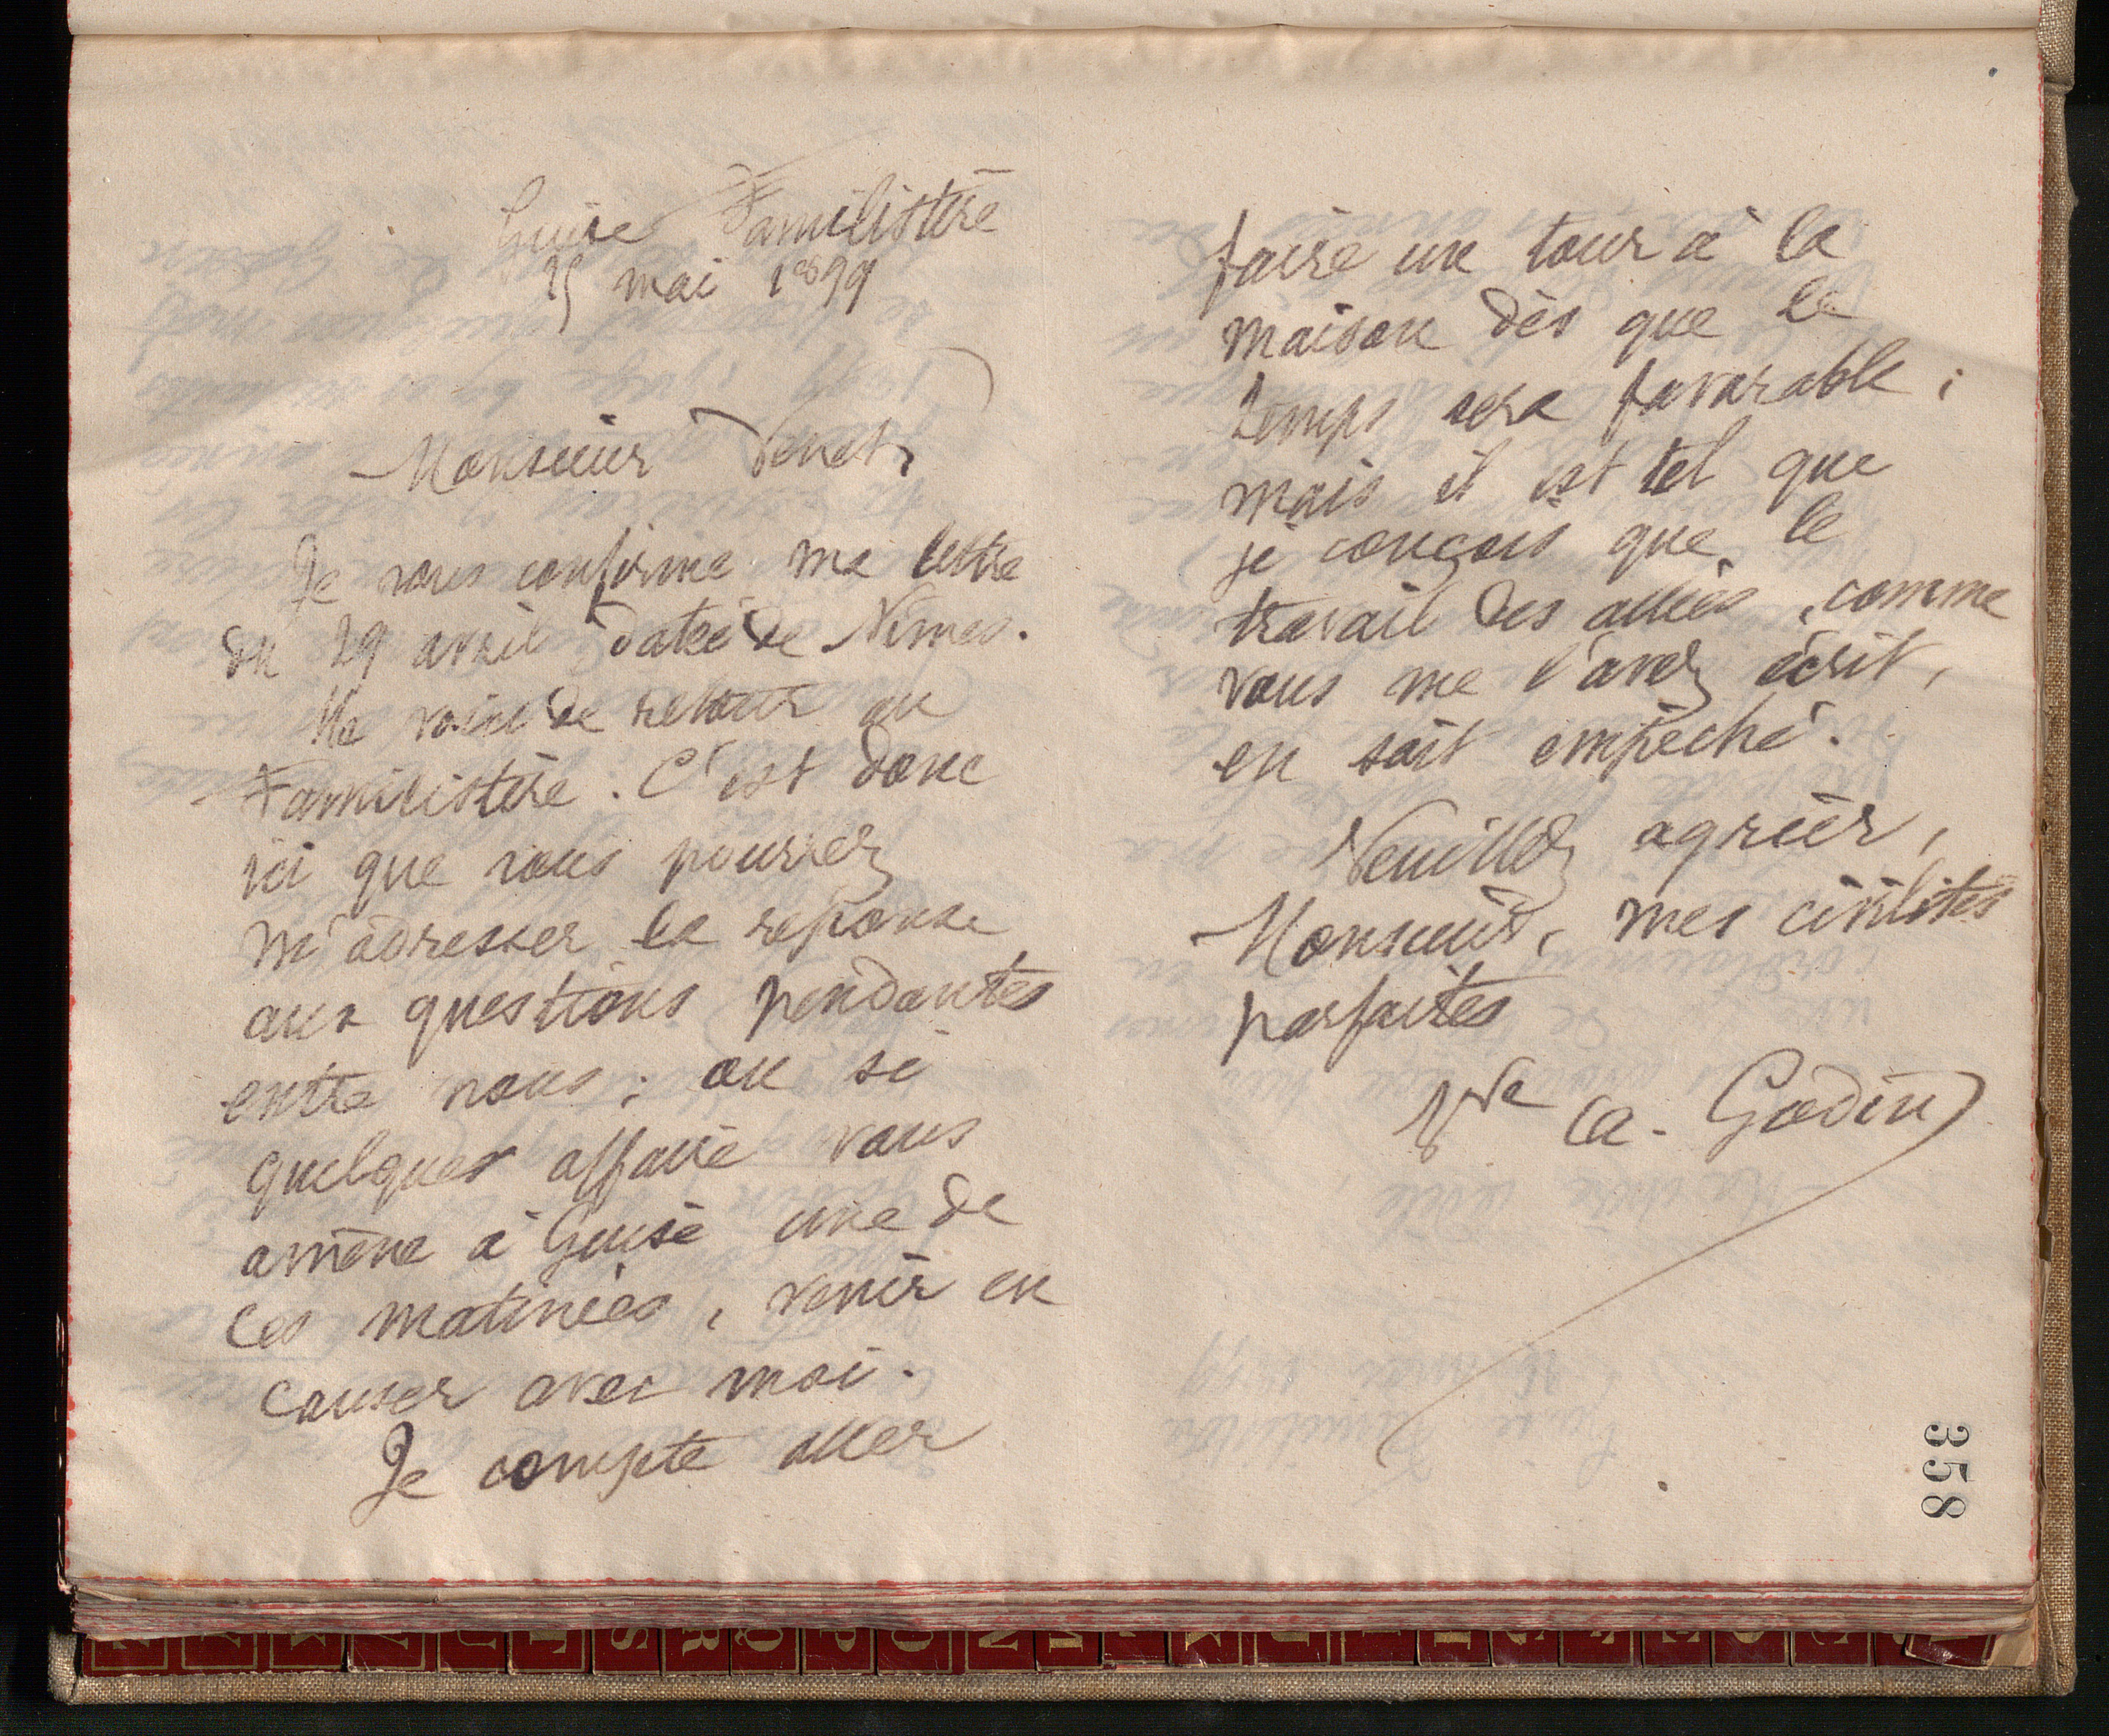 Guise Familistère
25 mai 1899
Monsieur Venet,
Je vous confirme ma lettre
du 29 avril datée de Nîmes.
Me voici de retour au
Familistère. C'est donc
ici que vous pourrez
m'adresser la réponse
aux questions pendantes
entre nous ; ou si
quelques affaire vous
amène à Guise une de
ces matinées, venir en
causer avec moi.
Je compte aller
faire un tour à la
maison dès que le
temps sera favorable ;
mais il est tel que
je conçois que le
travail des allées, comme
vous me l'avez écrit,
en soit empêché.
Veuillez agréer,
Monsieur, mes civilités
parfaites
Vve A. Godin
358
Z
Y
X
V
U
T
S
R
Q
P
O
N
M
L
K
J
I
H
G
F
E
D
C